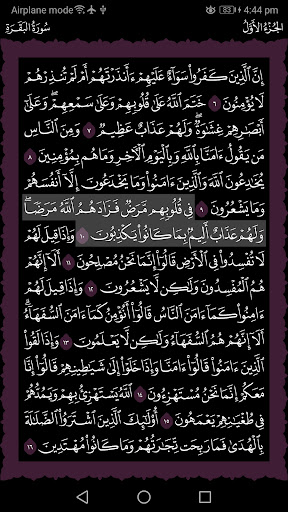 Airplane mode 4:44 pm
سُورَةُ البَقَرَةِ الجُزْءُ الأَوَّلُ
إِنَّ ٱلَّذِينَ كَفَرُوا۟ سَوَآءٌ عَلَيْهِمْ ءَأَنذَرْتَهُمْ أَمْ لَمْ تُنذِرْهُمْ
لَا يُؤْمِنُونَ ٦ خَتَمَ ٱللَّهُ عَلَىٰ قُلُوبِهِمْ وَعَلَىٰ سَمْعِهِمْ ۖ وَعَلَىٰٓ
أَبْصَٰرِهِمْ غِشَٰوَةٌ ۖ وَلَهُمْ عَذَابٌ عَظِيمٌ ٧ وَمِنَ ٱلنَّاسِ
مَن يَقُولُ ءَامَنَّا بِٱللَّهِ وَبِٱلْيَوْمِ ٱلْءَاخِرِ وَمَا هُم بِمُؤْمِنِينَ ٨
يُخَٰدِعُونَ ٱللَّهَ وَٱلَّذِينَ ءَامَنُوا۟ وَمَا يَخْدَعُونَ إِلَّآ أَنفُسَهُمْ
وَمَا يَشْعُرُونَ ٩ فِى قُلُوبِهِم مَّرَضٌ فَزَادَهُمُ ٱللَّهُ مَرَضًا ۖ
وَلَهُمْ عَذَابٌ أَلِيمٌۢ بِمَا كَانُوا۟ يَكْذِبُونَ ١٠ وَإِذَا قِيلَ لَهُمْ
لَا تُفْسِدُوا۟ فِى ٱلْأَرْضِ قَالُوٓا۟ إِنَّمَا نَحْنُ مُصْلِحُونَ ١١ أَلَآ إِنَّهُمْ
هُمُ ٱلْمُفْسِدُونَ وَلَٰكِن لَّا يَشْعُرُونَ ١٢ وَإِذَا قِيلَ لَهُمْ
ءَامِنُوا۟ كَمَآ ءَامَنَ ٱلنَّاسُ قَالُوٓا۟ أَنُؤْمِنُ كَمَآ ءَامَنَ ٱلسُّفَهَآءُ ۗ
أَلَآ إِنَّهُمْ هُمُ ٱلسُّفَهَآءُ وَلَٰكِن لَّا يَعْلَمُونَ ١٣ وَإِذَا لَقُوا۟
ٱلَّذِينَ ءَامَنُوا۟ قَالُوٓا۟ ءَامَنَّا وَإِذَا خَلَوْا۟ إِلَىٰ شَيَٰطِينِهِمْ قَالُوٓا۟ إِنَّا
مَعَكُمْ إِنَّمَا نَحْنُ مُسْتَهْزِءُونَ ١٤ ٱللَّهُ يَسْتَهْزِئُ بِهِمْ وَيَمُدُّهُمْ
فِى طُغْيَٰنِهِمْ يَعْمَهُونَ ١٥ أُو۟لَٰٓئِكَ ٱلَّذِينَ ٱشْتَرَوُا۟ ٱلضَّلَٰلَةَ
بِٱلْهُدَىٰ فَمَا رَبِحَت تِّجَٰرَتُهُمْ وَمَا كَانُوا۟ مُهْتَدِينَ ١٦